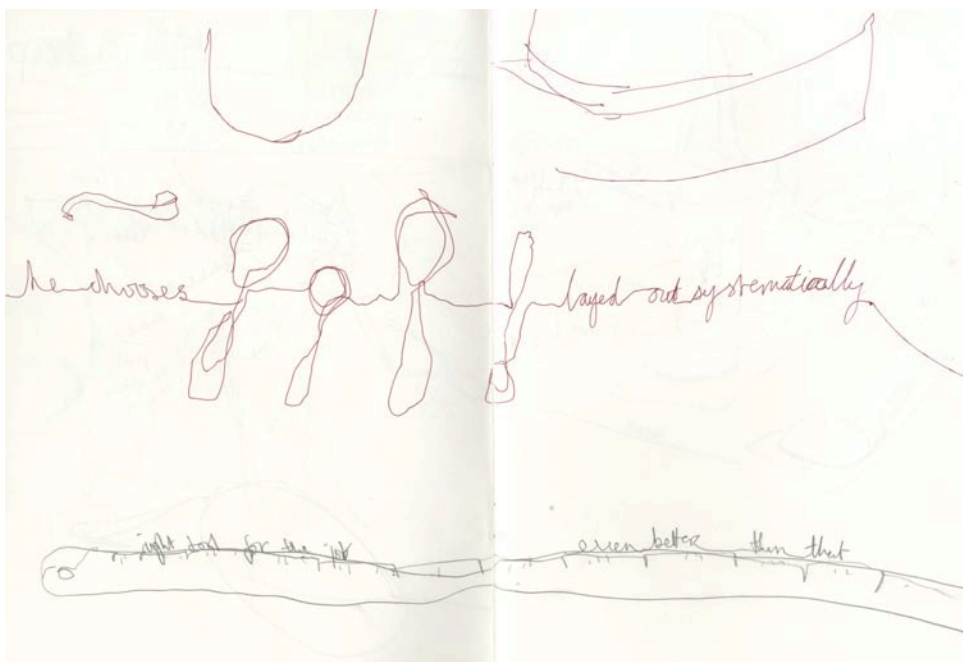 he chooses layed out systematically
right tool for the job even better then that